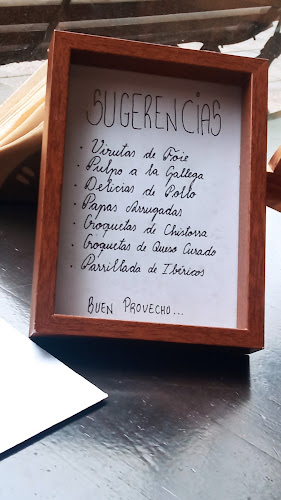 SUGERENCIAS
· Virutas de Foie
· Pulpo a la Gallega
· Delicias de Pollo
· Papas Arrugadas
· Croquetas de Chistorra
· Croquetas de Queso Curado
· Parrillada de Ibéricos
BUEN PROVECHO...